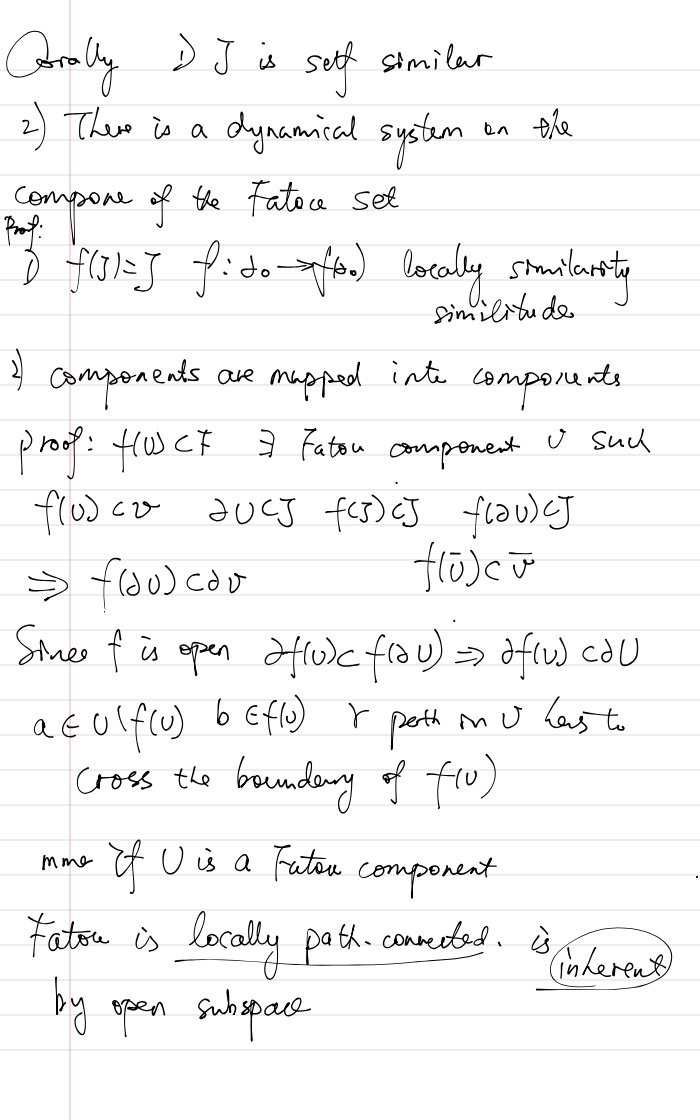 Corally 1) J is self similar
2) There is a dynamical system on the
compone of the Fatou set
Proof:
1) f(J)=J f: locally similarity
similitude
2) components are mapped into components
proof: f(U) ⊂ F ∃ Fatou component v such
f(U) ⊂ v ∂U ⊂ J f(J) ⊂ J f(∂U) ⊂ J
⇒ f(∂U) ⊂ ∂v f(Ū) ⊂ v̄
Since f is open ∂f(U) ⊂ f(∂U) ⇒ ∂f(U) ⊂ ∂U
a ∈ U \ f(U) b ∈ f(U) γ path in U has to
cross the boundary of f(U)
If U is a Fatou component
Fatou is locally path-connected. is inherent
by open subspace